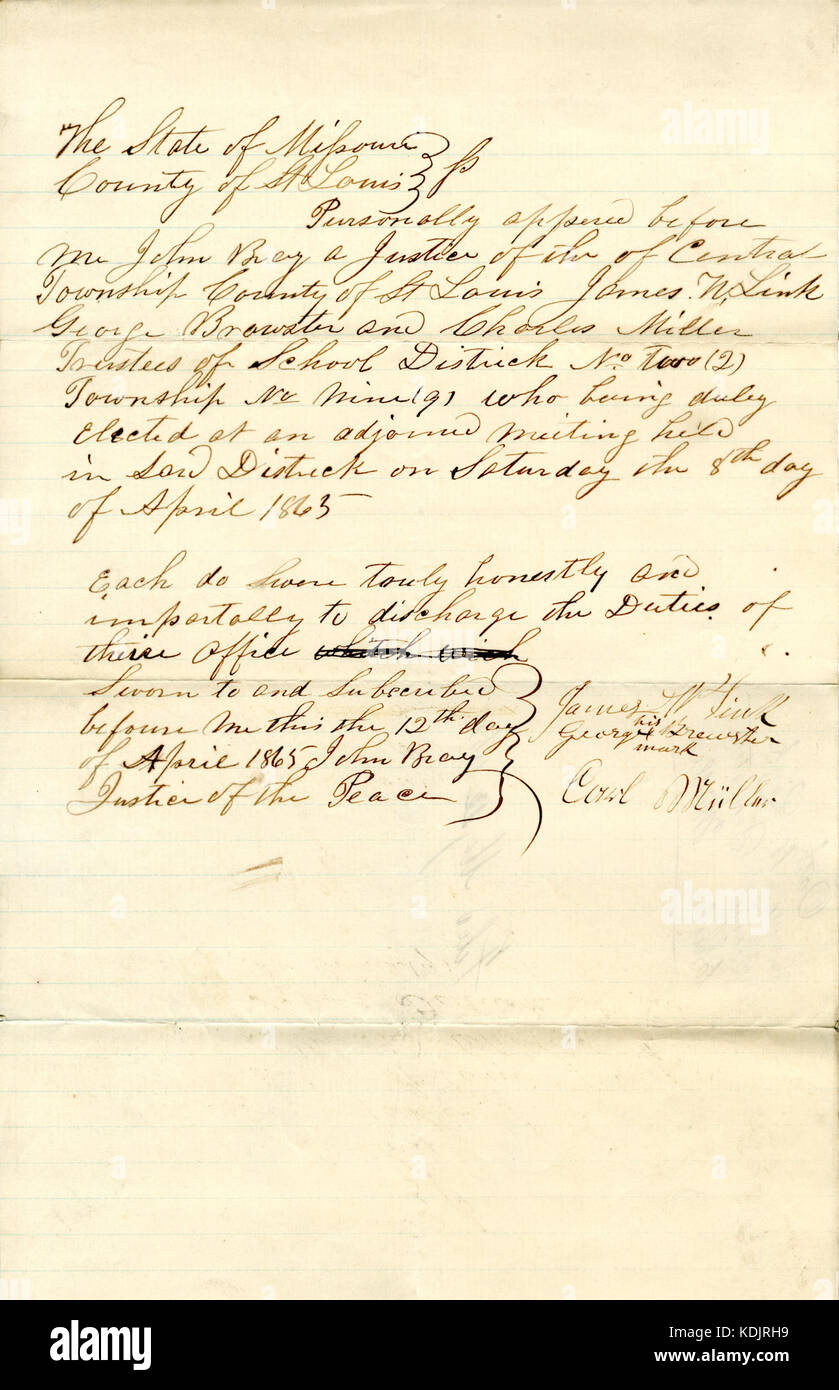 The State of Missouri } ss
County of St Louis
Personally appered before
me John Bray a Justice of the of Central
Township County of St Louis James. W. Link
George Browster and Charles Miller
Trustees of School Districk No two (2)
Township No Nine (9) who being duley
Elected at an adjorned meeting held
in Said Districk on Saturday the 8th day
of April 1865
Each do swere truly honestly and
impartally to discharge the Duties of
theire office
Sworn to and Subscribed
befoure me this the 12th day
of April 1865 John Bray
Justice of the Peace
James W Link
George his x mark Brewster
Carl Müller
alamy
alamy
alamy
alamy
alamy
a
a
a
alamy
Image ID: KDJRH9
www.alamy.com